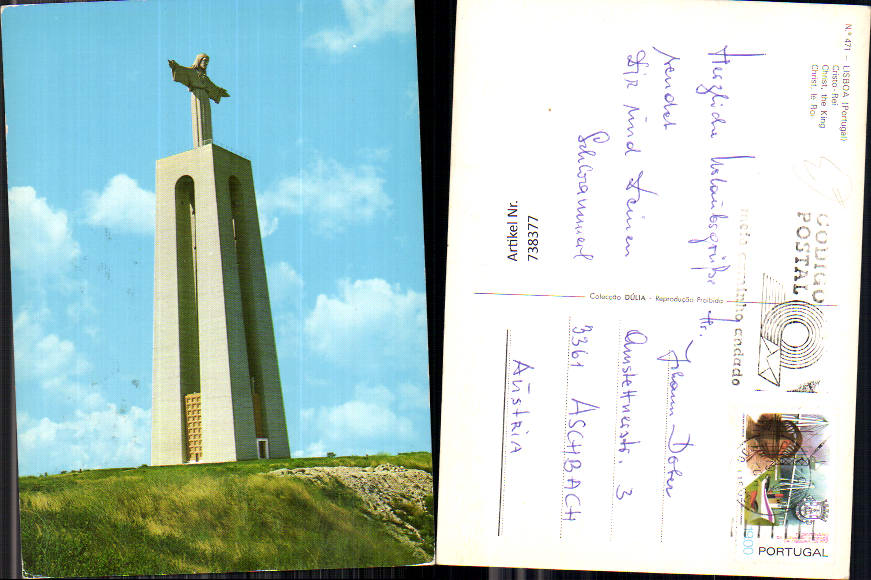 Nº 471 – LISBOA (Portugal)
Cristo-Rei
Christ, the King
Christ, le Roi
Herzliche Urlaubsgrüße
sendet
Dir und Deinen
Artikel Nr.
738377
CODIGO
POSTAL
meio caminho andado
Colecção DÚLIA - Reprodução Proibida
Hr.
Johann Dorer
Amstettnerstr. 3
3361 ASCHBACH
Austria
1900 PORTUGAL